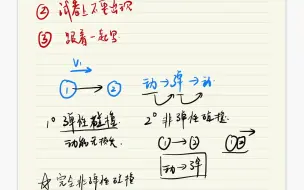 ② 试卷上不要出现
③ 跟着一起写
V₁
① → ② 动→弹→动
1° 弹性碰撞 2° 非弹性碰撞
动能无损失 ①→②
动→弹
完全非弹性碰撞